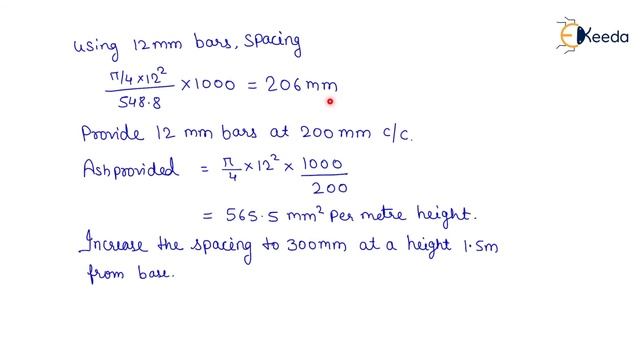 Keeda
Using 12mm bars, spacing
π/4 × 12² / 548.8 × 1000 = 206 mm
Provide 12 mm bars at 200 mm c/c.
Ash provided = π/4 × 12² × 1000/200
= 565.5 mm² Per metre height.
Increase the spacing to 300mm at a height 1.5m
from base.